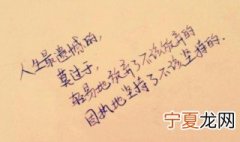 人生最遗憾的,
莫过于,
轻易地放弃了不该放弃的
固执地坚持了不该坚持的.
宁夏龙网